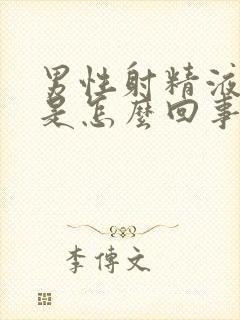 男性射精液
是怎麼回事
李傳文